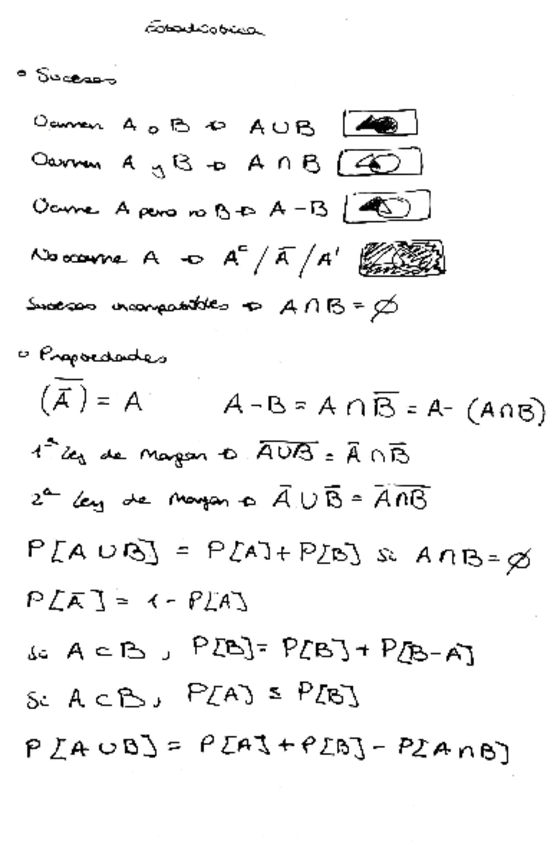 Estadística
° Sucesos
Ocurren A o B → A ∪ B
Ocurren A y B → A ∩ B
Ocurre A pero no B → A - B
No ocurre A → Aᶜ / A̅ / A'
Sucesos incompatibles → A ∩ B = ∅
° Propiedades
(A̅)̅ = A A - B = A ∩ B̅ = A - (A ∩ B)
1ª Ley de Morgan → \overline{A ∪ B} = A̅ ∩ B̅
2ª Ley de Morgan → A̅ ∪ B̅ = \overline{A ∩ B}
P[A ∪ B] = P[A] + P[B] si A ∩ B = ∅
P[A̅] = 1 - P[A]
si A ⊂ B, P[B] = P[B] + P[B-A]
Si A ⊂ B, P[A] ≤ P[B]
P[A ∪ B] = P[A] + P[B] - P[A ∩ B]